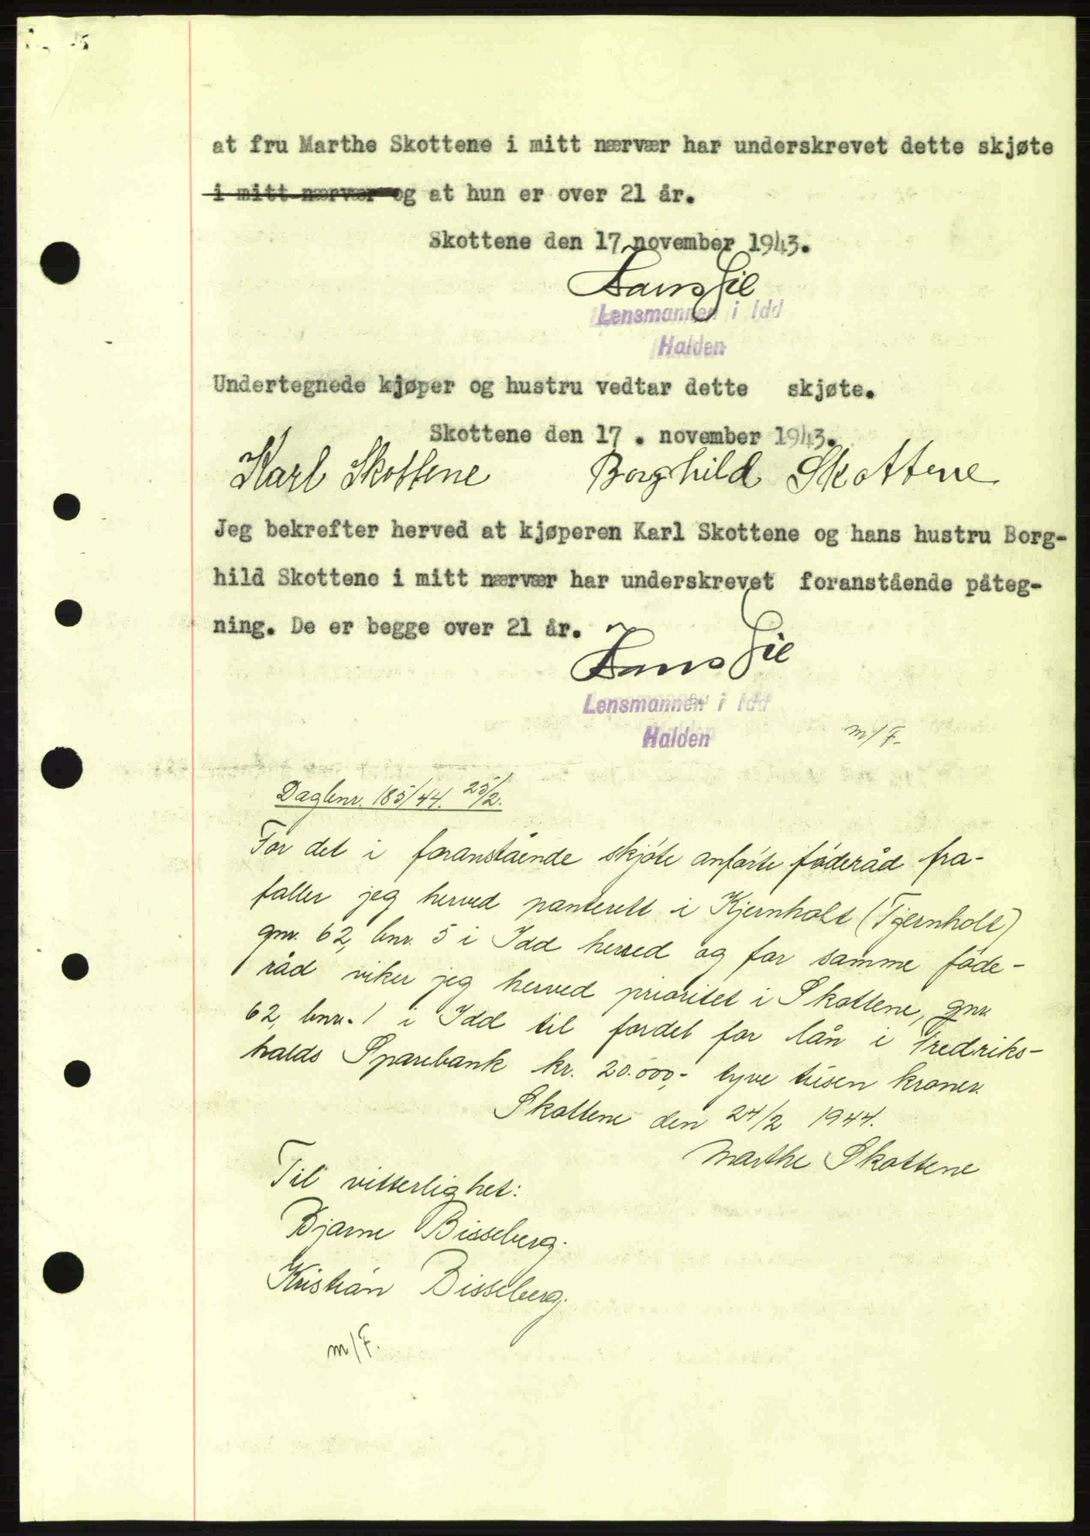 at fru Marthe Skottene i mitt nærvær har underskrevet dette skjøte
i mitt nærvær og at hun er over 21 år.
Skottene den 17 november 1943.
Hans Lie
Lensmannen i Idd
Halden
Undertegnede kjøper og hustru vedtar dette skjøte.
Skottene den 17 . november 1943.
Karl Skottene Borghild Skottene
Jeg bekrefter herved at kjøperen Karl Skottene og hans hustru Borg-
hild Skottene i mitt nærvær har underskrevet foranstående påteg-
ning. De er begge over 21 år.
Hans Lie
Lensmannen i Idd
Halden
m/F.
Dagbnr. 185/44. 25/2.
For det i foranstående skjøte anførte føderåd fra-
faller jeg herved panterett i Kjernholt (Tjernholt)
gnr. 62, bnr. 5 i Idd herred og for samme føde-
råd viker jeg herved prioritet i Skottene, gnr.
62, bnr. 1 i Idd til fordel for lån i Fredriks-
halds Sparebank kr. 20.000,- tyve tusen kroner.
Skottene den 24/2 1944.
Marthe Skottene
Til vitterlighet:
Bjarne Bisseberg.
Kristian Bisseberg.
m/F.